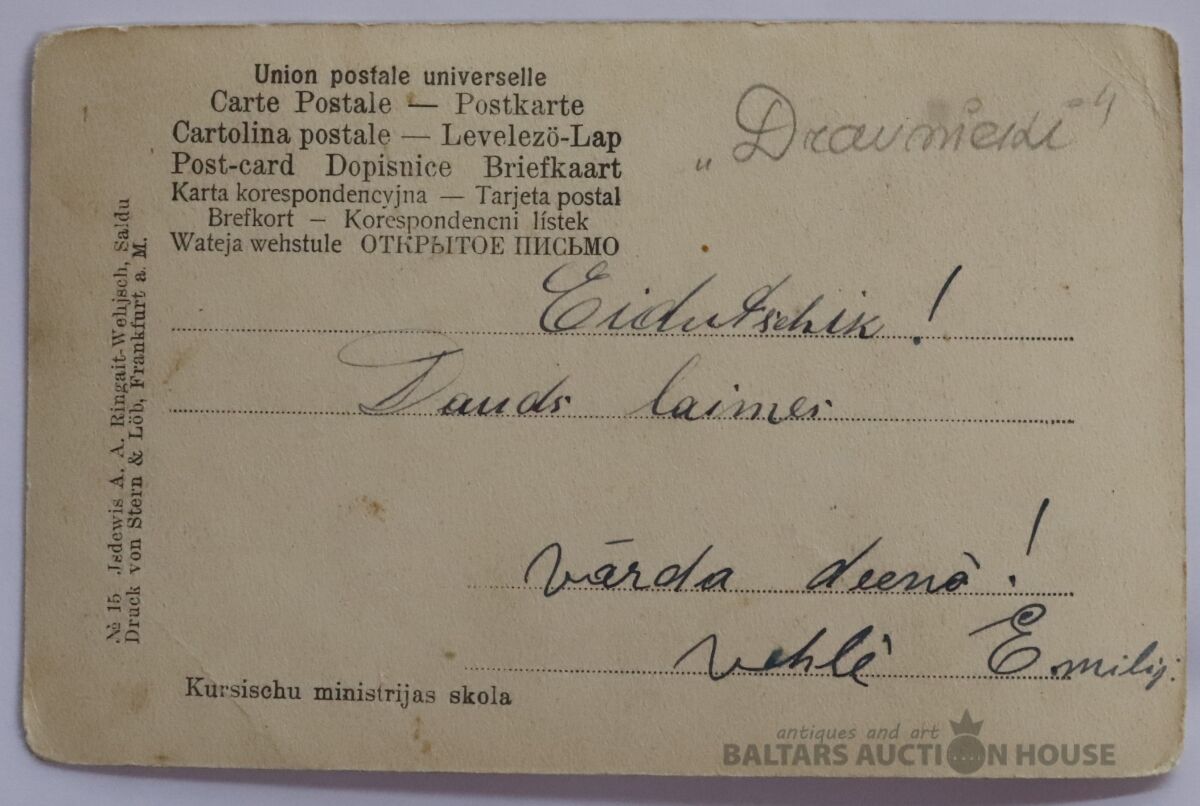 Union postale universelle
Carte Postale — Postkarte
Cartolina postale — Levelezö-Lap
Post-card Dopisnice Briefkaart
Karta korespondencyjna — Tarjeta postal
Brefkort — Korespondencni lístek
Wateja wehstule ОТКРЫТОЕ ПИСЬМО
„Dravnieki“
Eidutschik!
Dauds laimes
vārda deenā!
vehlē Emilij.
№ 15 Jsdewis A. A. Ringait-Wehjsch, Saldu
Druck von Stern & Löb, Frankfurt a. M.
Kursischu ministrijas skola
antiques and art
BALTARS AUCTION HOUSE